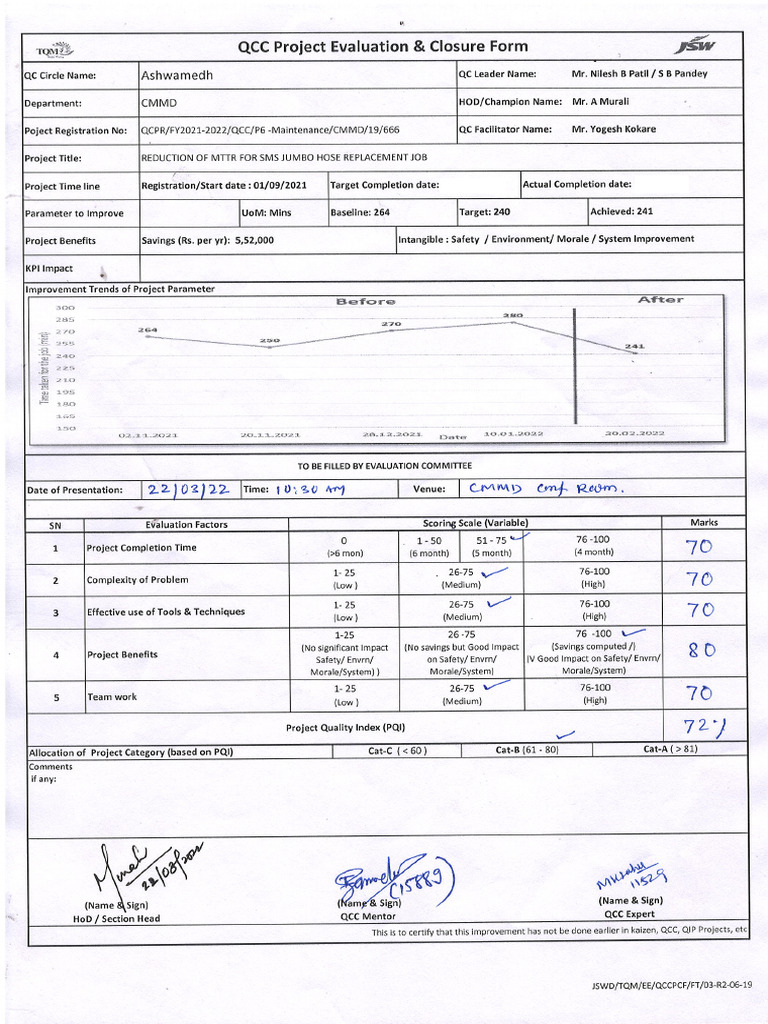 TQM
QCC Project Evaluation & Closure Form
JSW
QC Circle Name: Ashwamedh QC Leader Name: Mr. Nilesh B Patil / S B Pandey
Department: CMMD HOD/Champion Name: Mr. A Murali
Poject Registration No: QCPR/FY2021-2022/QCC/P6 -Maintenance/CMMD/19/666 QC Facilitator Name: Mr. Yogesh Kokare
Project Title: REDUCTION OF MTTR FOR SMS JUMBO HOSE REPLACEMENT JOB
Project Time line Registration/Start date : 01/09/2021 Target Completion date: Actual Completion date:
Parameter to Improve UoM: Mins Baseline: 264 Target: 240 Achieved: 241
Project Benefits Savings (Rs. per yr): 5,52,000 Intangible : Safety / Environment/ Morale / System Improvement
KPI Impact
Improvement Trends of Project Parameter
Before After
Time taken for the job (min)
300
285
270
255
240
225
210
195
180
165
150
264 250 270 280 241
02.11.2021 20.11.2021 26.12.2021 10.01.2022 20.02.2022
Date
TO BE FILLED BY EVALUATION COMMITTEE
Date of Presentation: 22/03/22 Time: 10:30 AM Venue: CMMD Conf Room.
SN Evaluation Factors Scoring Scale (Variable) Marks
1 Project Completion Time 0 1 - 50 51 - 75 76 -100 70
(>6 mon) (6 month) (5 month) (4 month)
2 Complexity of Problem 1- 25 26-75 76-100 70
(Low ) (Medium) (High)
3 Effective use of Tools & Techniques 1- 25 26-75 76-100 70
(Low ) (Medium) (High)
4 Project Benefits 1-25 26 -75 76 -100 80
(No significant Impact (No savings but Good Impact (Savings computed /)
Safety/ Envrn/ on Safety/ Envrn/ (V Good Impact on Safety/ Envrn/
Morale/System) ) Morale/System) Morale/System)
5 Team work 1- 25 26-75 76-100 70
(Low ) (Medium) (High)
Project Quality Index (PQI) 72%
Allocation of Project Category (based on PQI) Cat-C ( < 60 ) Cat-B (61 - 80) Cat-A ( > 81)
Comments
if any:
22/03/2022 (15889) 11529
(Name & Sign) (Name & Sign) (Name & Sign)
HoD / Section Head QCC Mentor QCC Expert
This is to certify that this improvement has not be done earlier in kaizen, QCC, QIP Projects, etc
JSWD/TQM/EE/QCCPCF/FT/03-R2-06-19